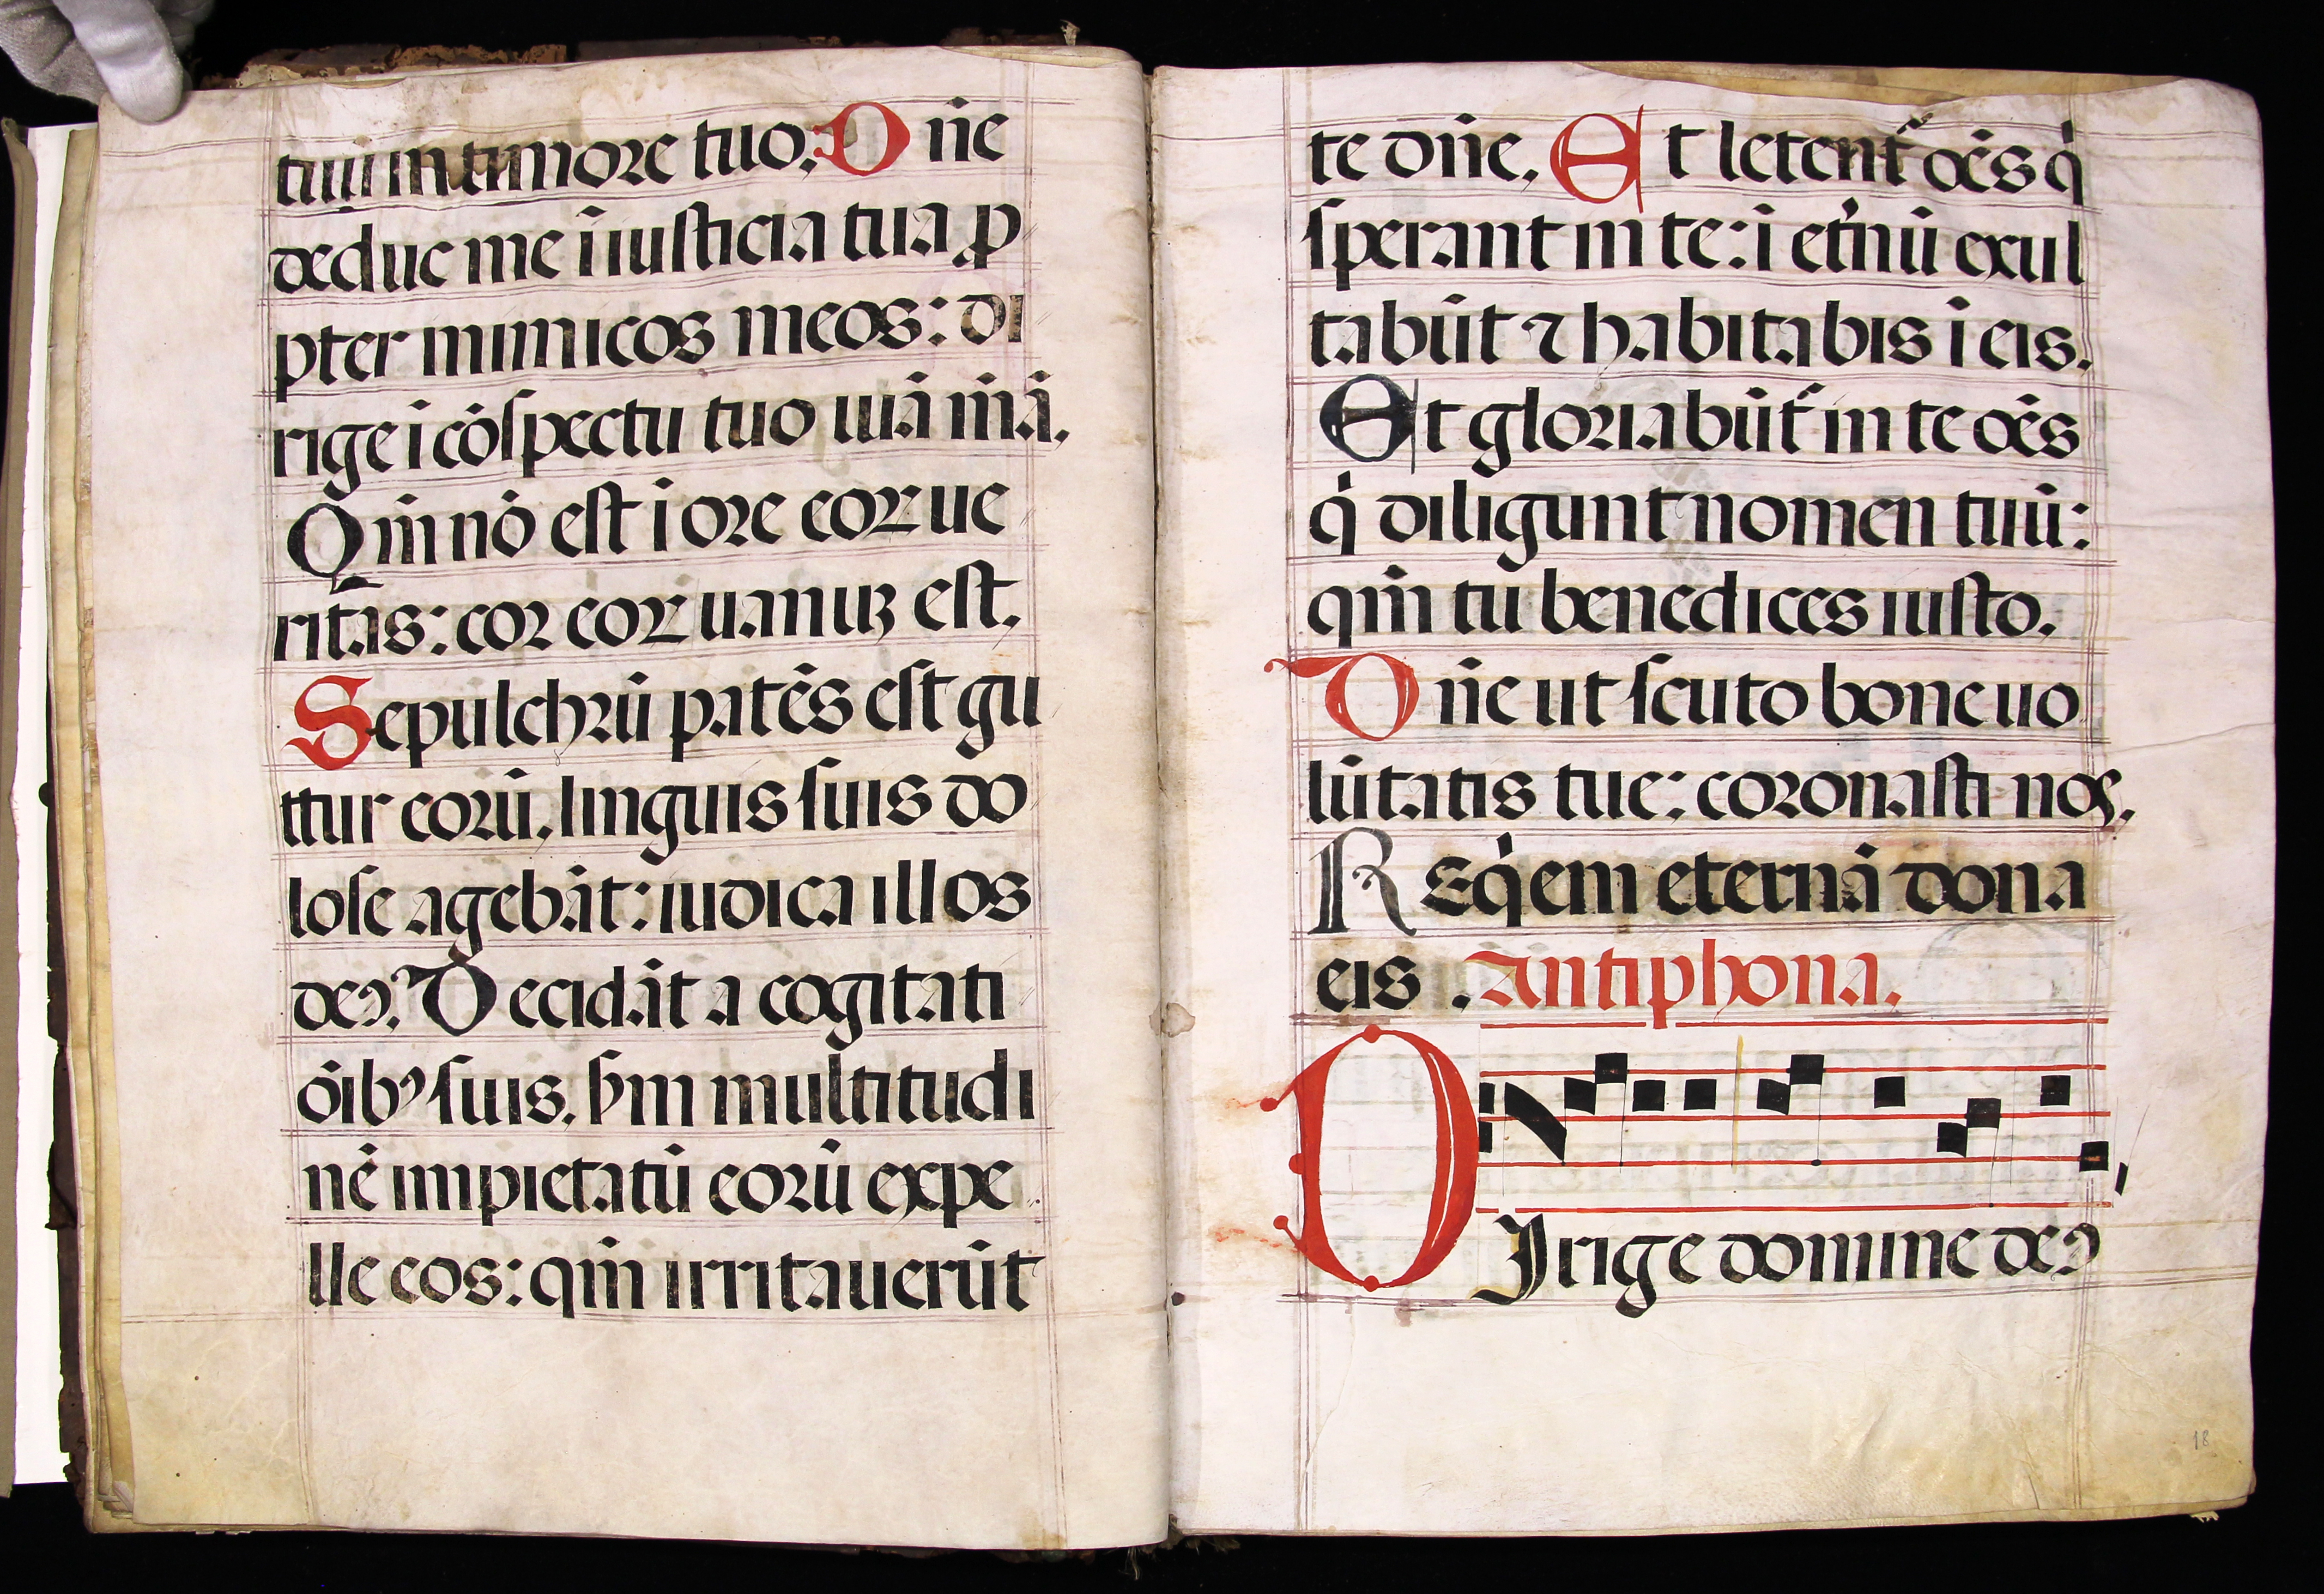 tuū in timore tuo: Dn̄e
deduc me ī iusticia tua ꝓ
pter inimicos meos: di
rige ī cōspectu tuo uiā m̄ā.
Qm̄ nō est ī ore eoꝝ ue
ritas: cor eoꝝ uanuꝫ est.
Sepulchrū patēs est gu
ttur eorū, linguis suis do
lose agebāt: iudica illos
deꝰ. Decidāt a cogitati
ōibꝰ suis, ẜm multitudi
nē impietatū eorū expe
lle eos: qm̄ irritauerūt
te dn̄e. Et letent᷑ oēs qͥ
sperant in te: ī et̓nū exul
tabūt ⁊ habitabis ī eis.
Et gloriabūt᷑ in te oēs
qͥ diligunt nomen tuū:
qm̄ tu benedices iusto.
Dn̄e ut scuto bone uo
lūtatis tue: coronasti nos.
Reqͥem eternā dona
eis. Antiphona.
DIrige domine deꝰ
18